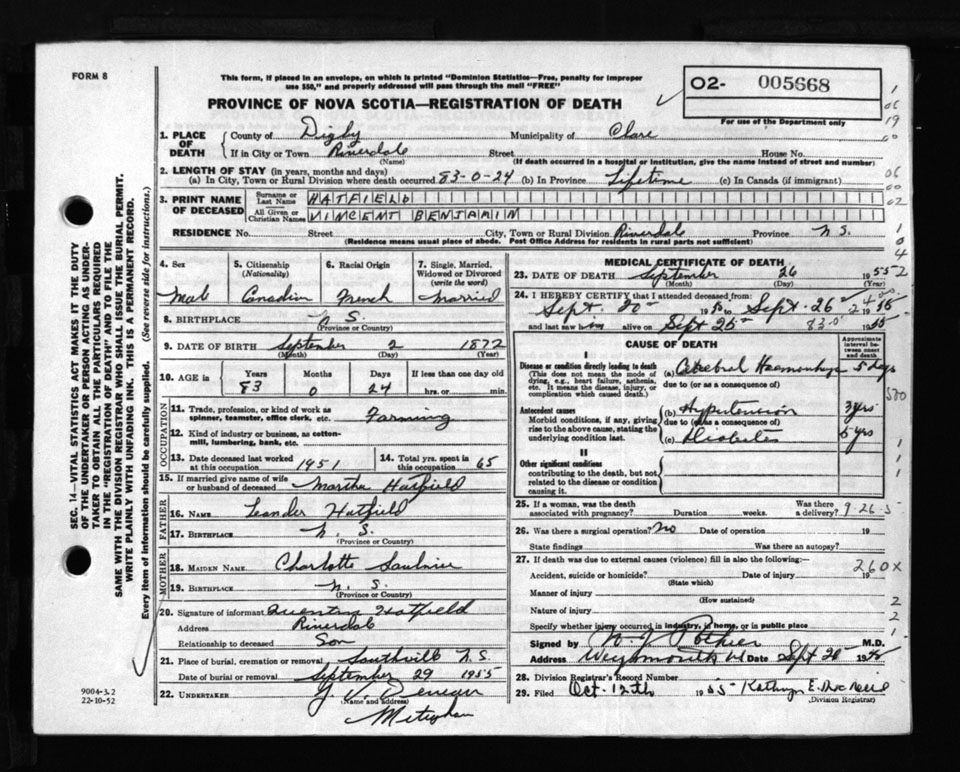 FORM 8
This form, if placed in an envelope, on which is printed "Dominion Statistics—Free, penalty for improper
use $50," and properly addressed will pass through the mail "FREE"
O2- 005668
For use of the Department only
PROVINCE OF NOVA SCOTIA—REGISTRATION OF DEATH
1. PLACE OF DEATH
County of Digby Municipality of Clare
If in City or Town Riverdale Street House No.
(Name) (If death occurred in a hospital or institution, give the name instead of street and number)
2. LENGTH OF STAY (in years, months and days)
(a) In City, Town or Rural Division where death occurred 83-0-24 (b) In Province Lifetime (c) In Canada (if immigrant)
3. PRINT NAME OF DECEASED
Surname or Last Name HATFIELD
All Given or Christian Names VINCENT BENJAMIN
RESIDENCE No. Street City, Town or Rural Division Riverdale Province N.S.
(Residence means usual place of abode. Post Office Address for residents in rural parts not sufficient)
4. Sex Male
5. Citizenship (Nationality) Canadian
6. Racial Origin French
7. Single, Married, Widowed or Divorced (write the word) Married
8. BIRTHPLACE N.S.
(Province or Country)
9. DATE OF BIRTH September 2 1872
(Month) (Day) (Year)
10. AGE in Years Months Days If less than one day old
83 0 24 hrs. or min.
OCCUPATION
11. Trade, profession, or kind of work as
spinner, teamster, office clerk, etc. Farming
12. Kind of industry or business, as cotton-
mill, lumbering, bank, etc.
13. Date deceased last worked at this occupation 1951
14. Total yrs. spent in this occupation 65
15. If married give name of wife
or husband of deceased Martha Hatfield
FATHER
16. NAME Leander Hatfield
17. BIRTHPLACE N.S.
(Province or Country)
MOTHER
18. MAIDEN NAME Charlotte Saulnier
19. BIRTHPLACE N.S.
(Province or Country)
20. Signature of informant Quentin Hatfield
Address Riverdale
Relationship to deceased Son
21. Place of burial, cremation or removal Southville N.S.
Date of burial or removal September 29 1955
22. UNDERTAKER
(Name and address)
Meteghan
MEDICAL CERTIFICATE OF DEATH
23. DATE OF DEATH September 26 1955
(Month) (Day) (Year)
24. I HEREBY CERTIFY that I attended deceased from:
Sept. 1950 to Sept. 26 1955
and last saw him alive on Sept 25 1955
CAUSE OF DEATH
Approximate interval between onset and death
I
Disease or condition directly leading to death
(This does not mean the mode of
dying, e.g., heart failure, asthenia,
etc. It means the disease, injury, or
complication which caused death.)
(a) Cerebral Haemorrhage 5 days
due to (or as a consequence of)
Antecedent causes
Morbid conditions, if any, giving
rise to the above cause, stating the
underlying condition last.
(b) Hypertension 3 yrs
due to (or as a consequence of)
(c) Diabetes 5 yrs
II
Other significant conditions
contributing to the death, but not
related to the disease or condition
causing it.
25. If a woman, was the death
associated with pregnancy? Duration weeks. Was there a delivery?
26. Was there a surgical operation? No Date of operation 19
State findings Was there an autopsy?
27. If death was due to external causes (violence) fill in also the following:—
Accident, suicide or homicide? Date of injury 19
(State which)
Manner of injury
(How sustained)
Nature of injury
Specify whether injury occurred in industry, in home, or in public place
Signed by M.D.
Address Weymouth Date Sept 1955
28. Division Registrar's Record Number
29. Filed Oct. 12th 1955
(Division Registrar)
260X
SEC. 14—VITAL STATISTICS ACT MAKES IT THE DUTY
OF THE UNDERTAKER OR PERSON ACTING AS UNDER-
TAKER TO OBTAIN ALL THE PARTICULARS REQUIRED
IN THE "REGISTRATION OF DEATH" AND TO FILE THE
SAME WITH THE DIVISION REGISTRAR WHO SHALL ISSUE THE BURIAL PERMIT.
WRITE PLAINLY WITH UNFADING INK. THIS IS A PERMANENT RECORD.
Every item of information should be carefully supplied. (See reverse side for instructions.)
9004-3.2
22-10-52